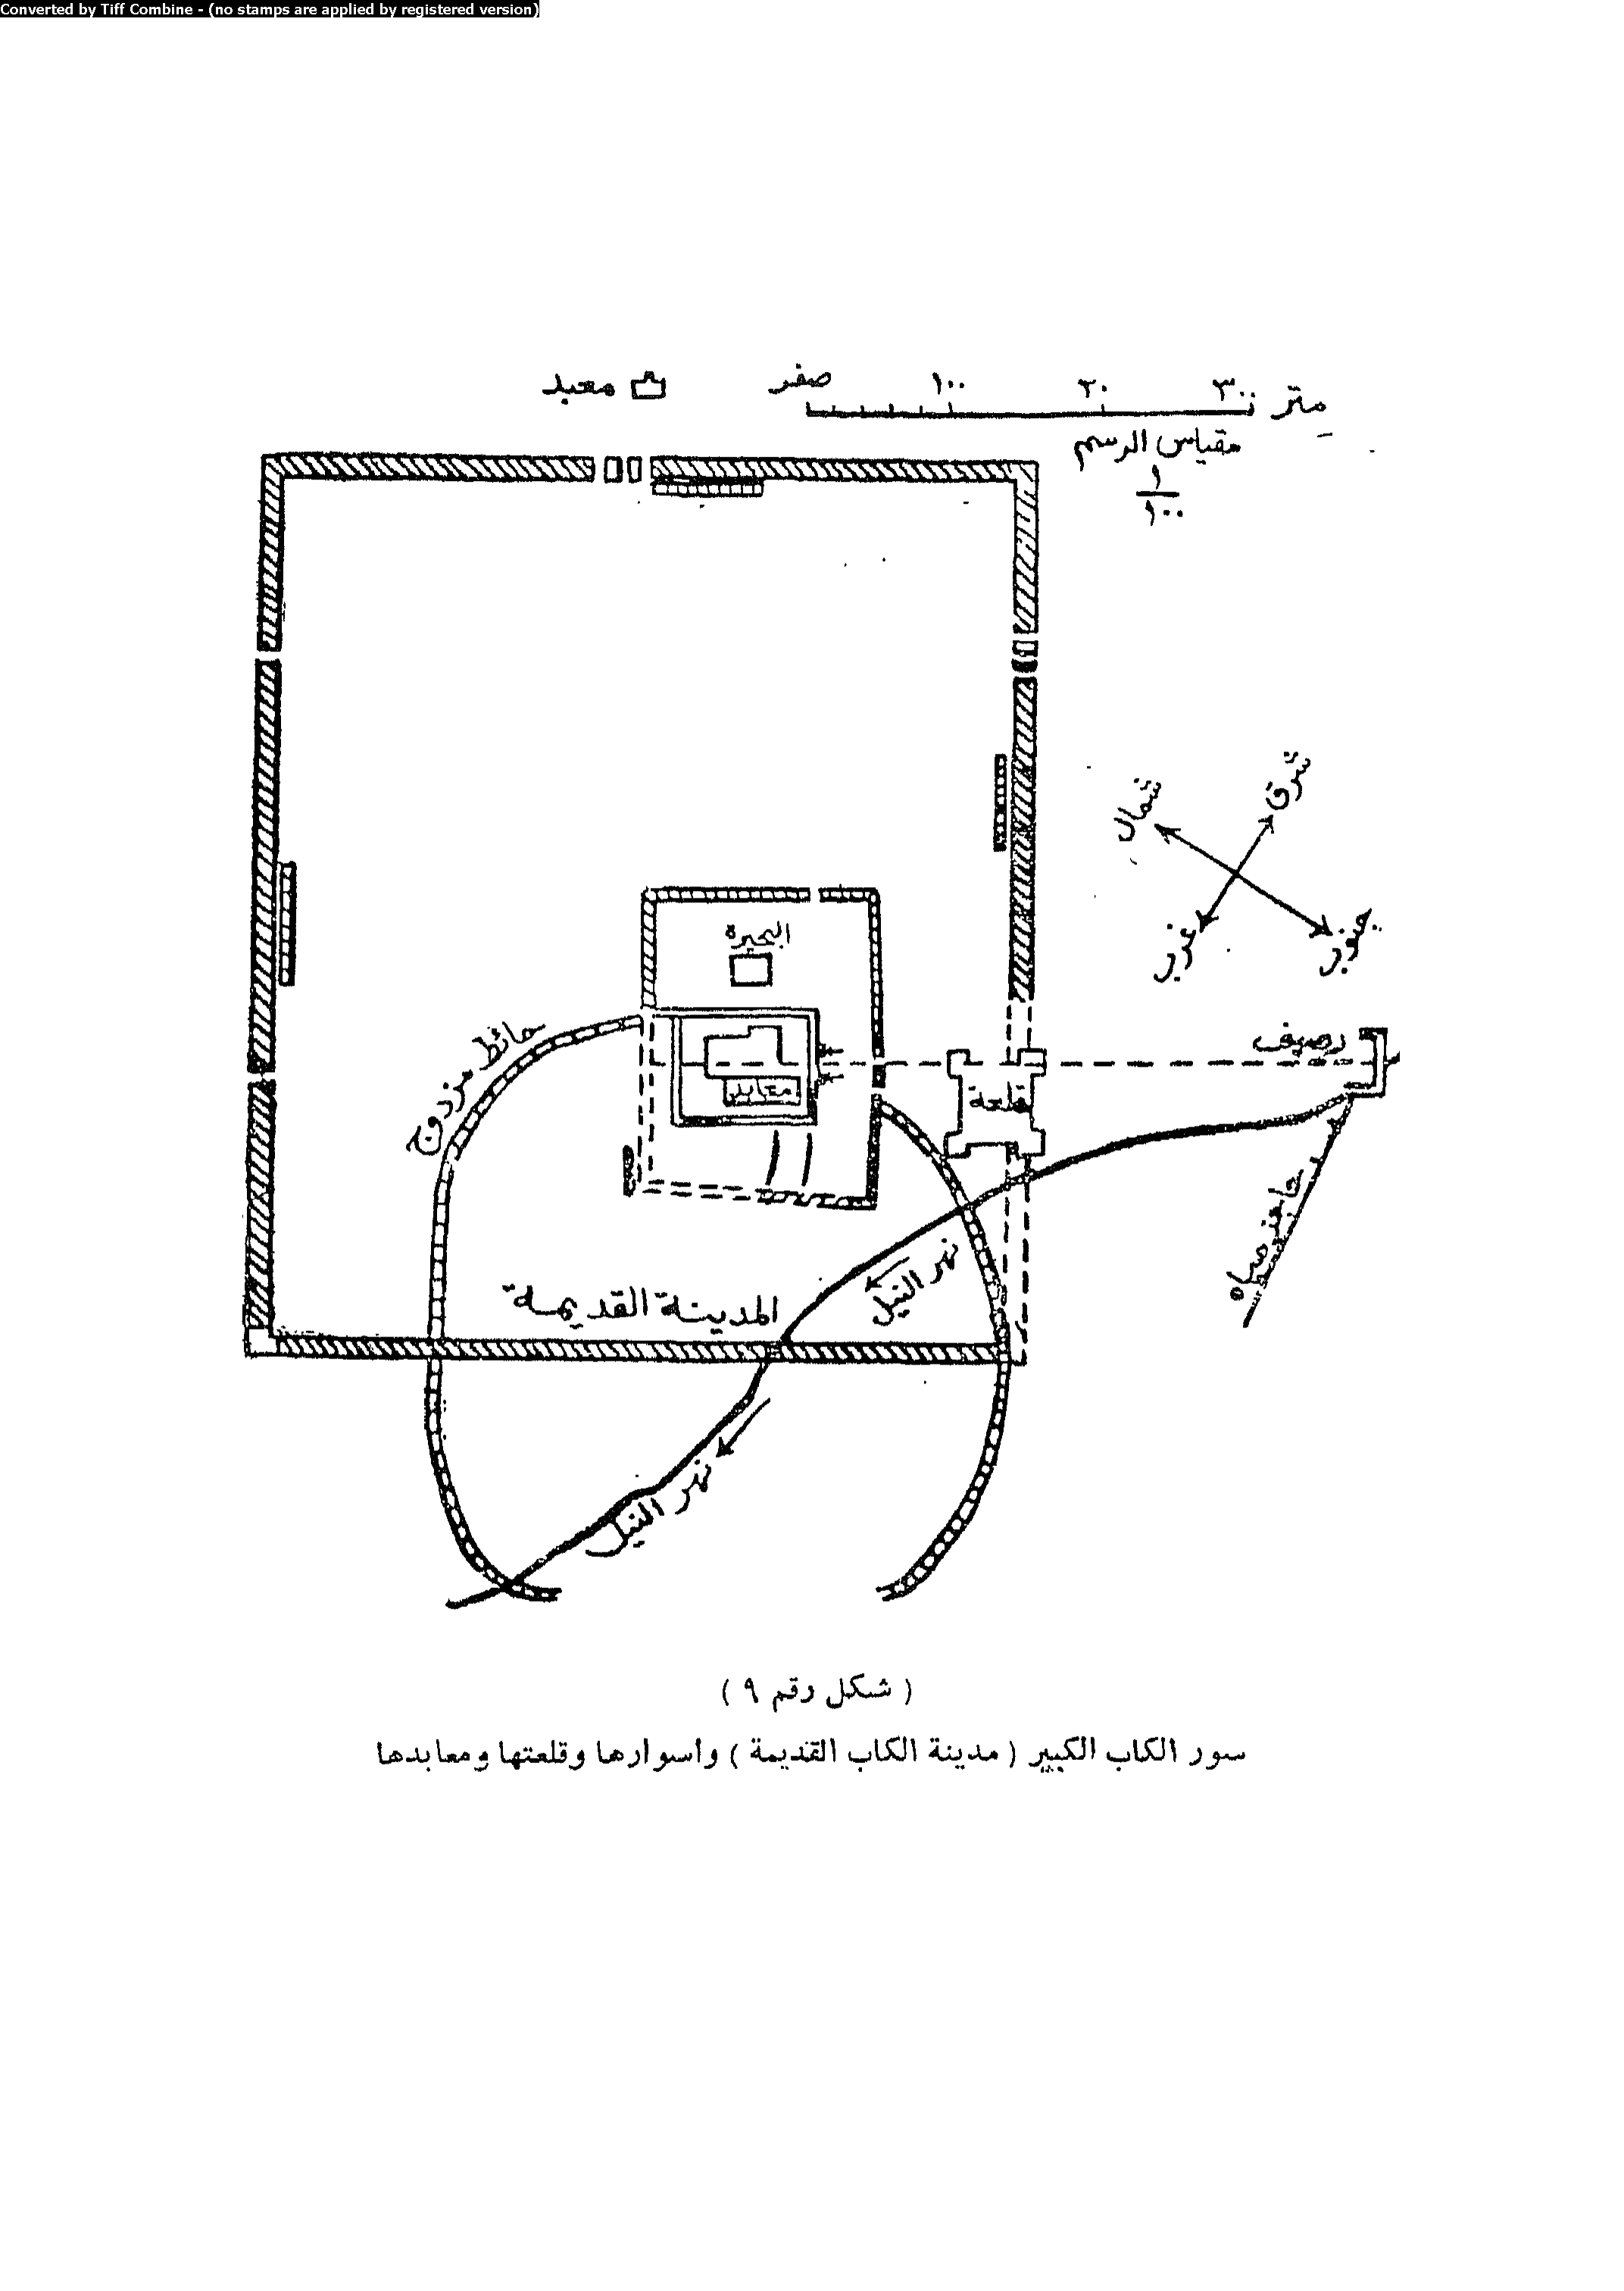 Converted by Tiff Combine - (no stamps are applied by registered version)
معبد
صفر ١٠٠ ٢٠ ٣٠٠ متر
مقياس الرسم
١
١٠٠
شرق
شمال
غرب
جنوب
البحيرة
حائط مزدوج
معابد
قلعة
رصيف
المدينة القديمة
نهر النيل
نهر النيل
( شكل رقم ٩ )
سور الكاب الكبير ( مدينة الكاب القديمة ) وأسوارها وقلعتها ومعابدها